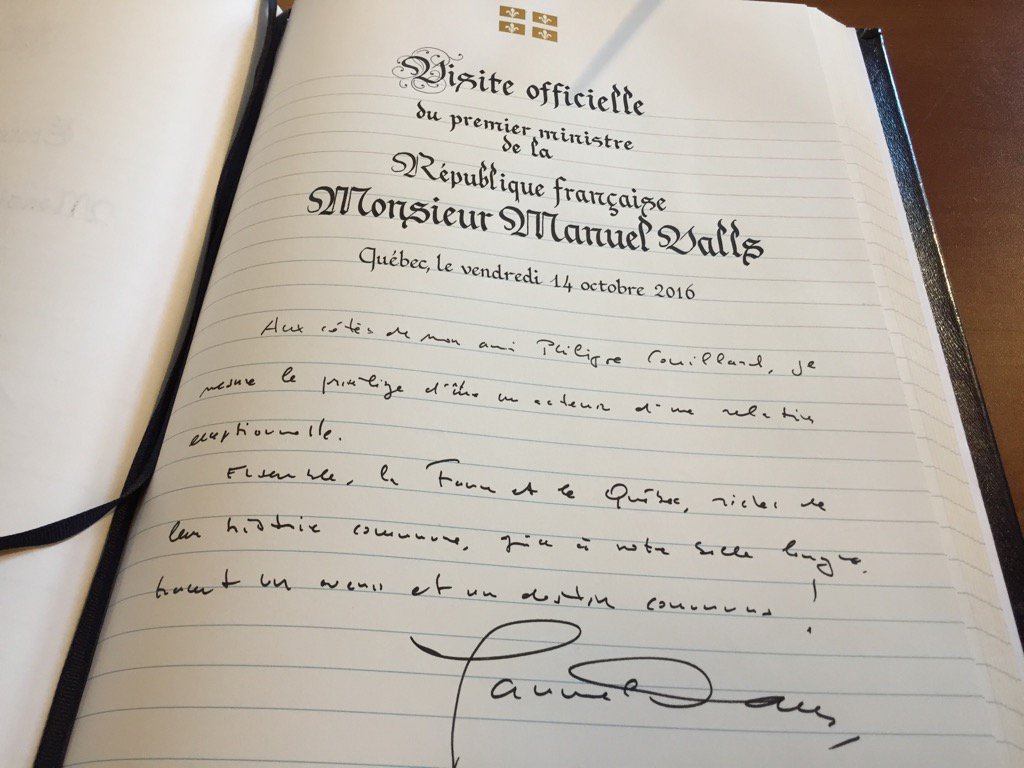 Visite officielle
du premier ministre
de la
République française
Monsieur Manuel Valls
Québec, le vendredi 14 octobre 2016
Aux côtés de mon ami Philippe Couillard, je
mesure le privilège d'être un acteur d'une relation
exceptionnelle.
Ensemble, la France et le Québec, riches de
leur histoire commune, grâce à notre belle langue,
tracent un avenir et un destin communs !
Manuel Valls